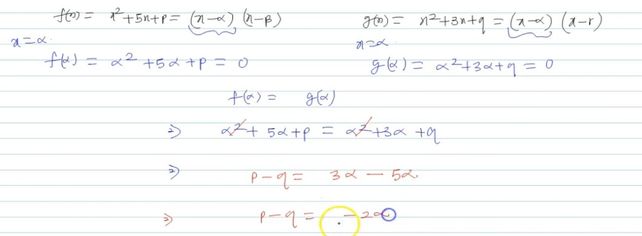 f(x) = x²+5x+p = (x-α) (x-β) g(x) = x²+3x+q = (x-α) (x-r)
x=α x=α
f(α) = α² +5α +p = 0 g(α) = α²+3α+q = 0
f(α) = g(α)
⇒ α²+ 5α+p = α²+3α +q
⇒ p-q = 3α - 5α
⇒ p-q = -2α